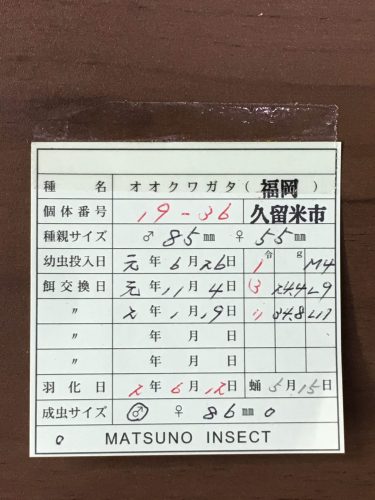 種 名 オオクワガタ(福岡)
個体番号 19-36 久留米市
種親サイズ ♂ 85㎜ ♀ 55㎜
幼虫投入日 元年6月26日 1令 g M4
餌交換日 元年11月4日 3 24.4 L9
〃 2年1月19日 〃 24.8 L17
〃 年 月 日
〃 年 月 日
羽化日 2年6月12日 蛹 5月15日
成虫サイズ ♂ ♀ 86㎜ 0
0 MATSUNO INSECT